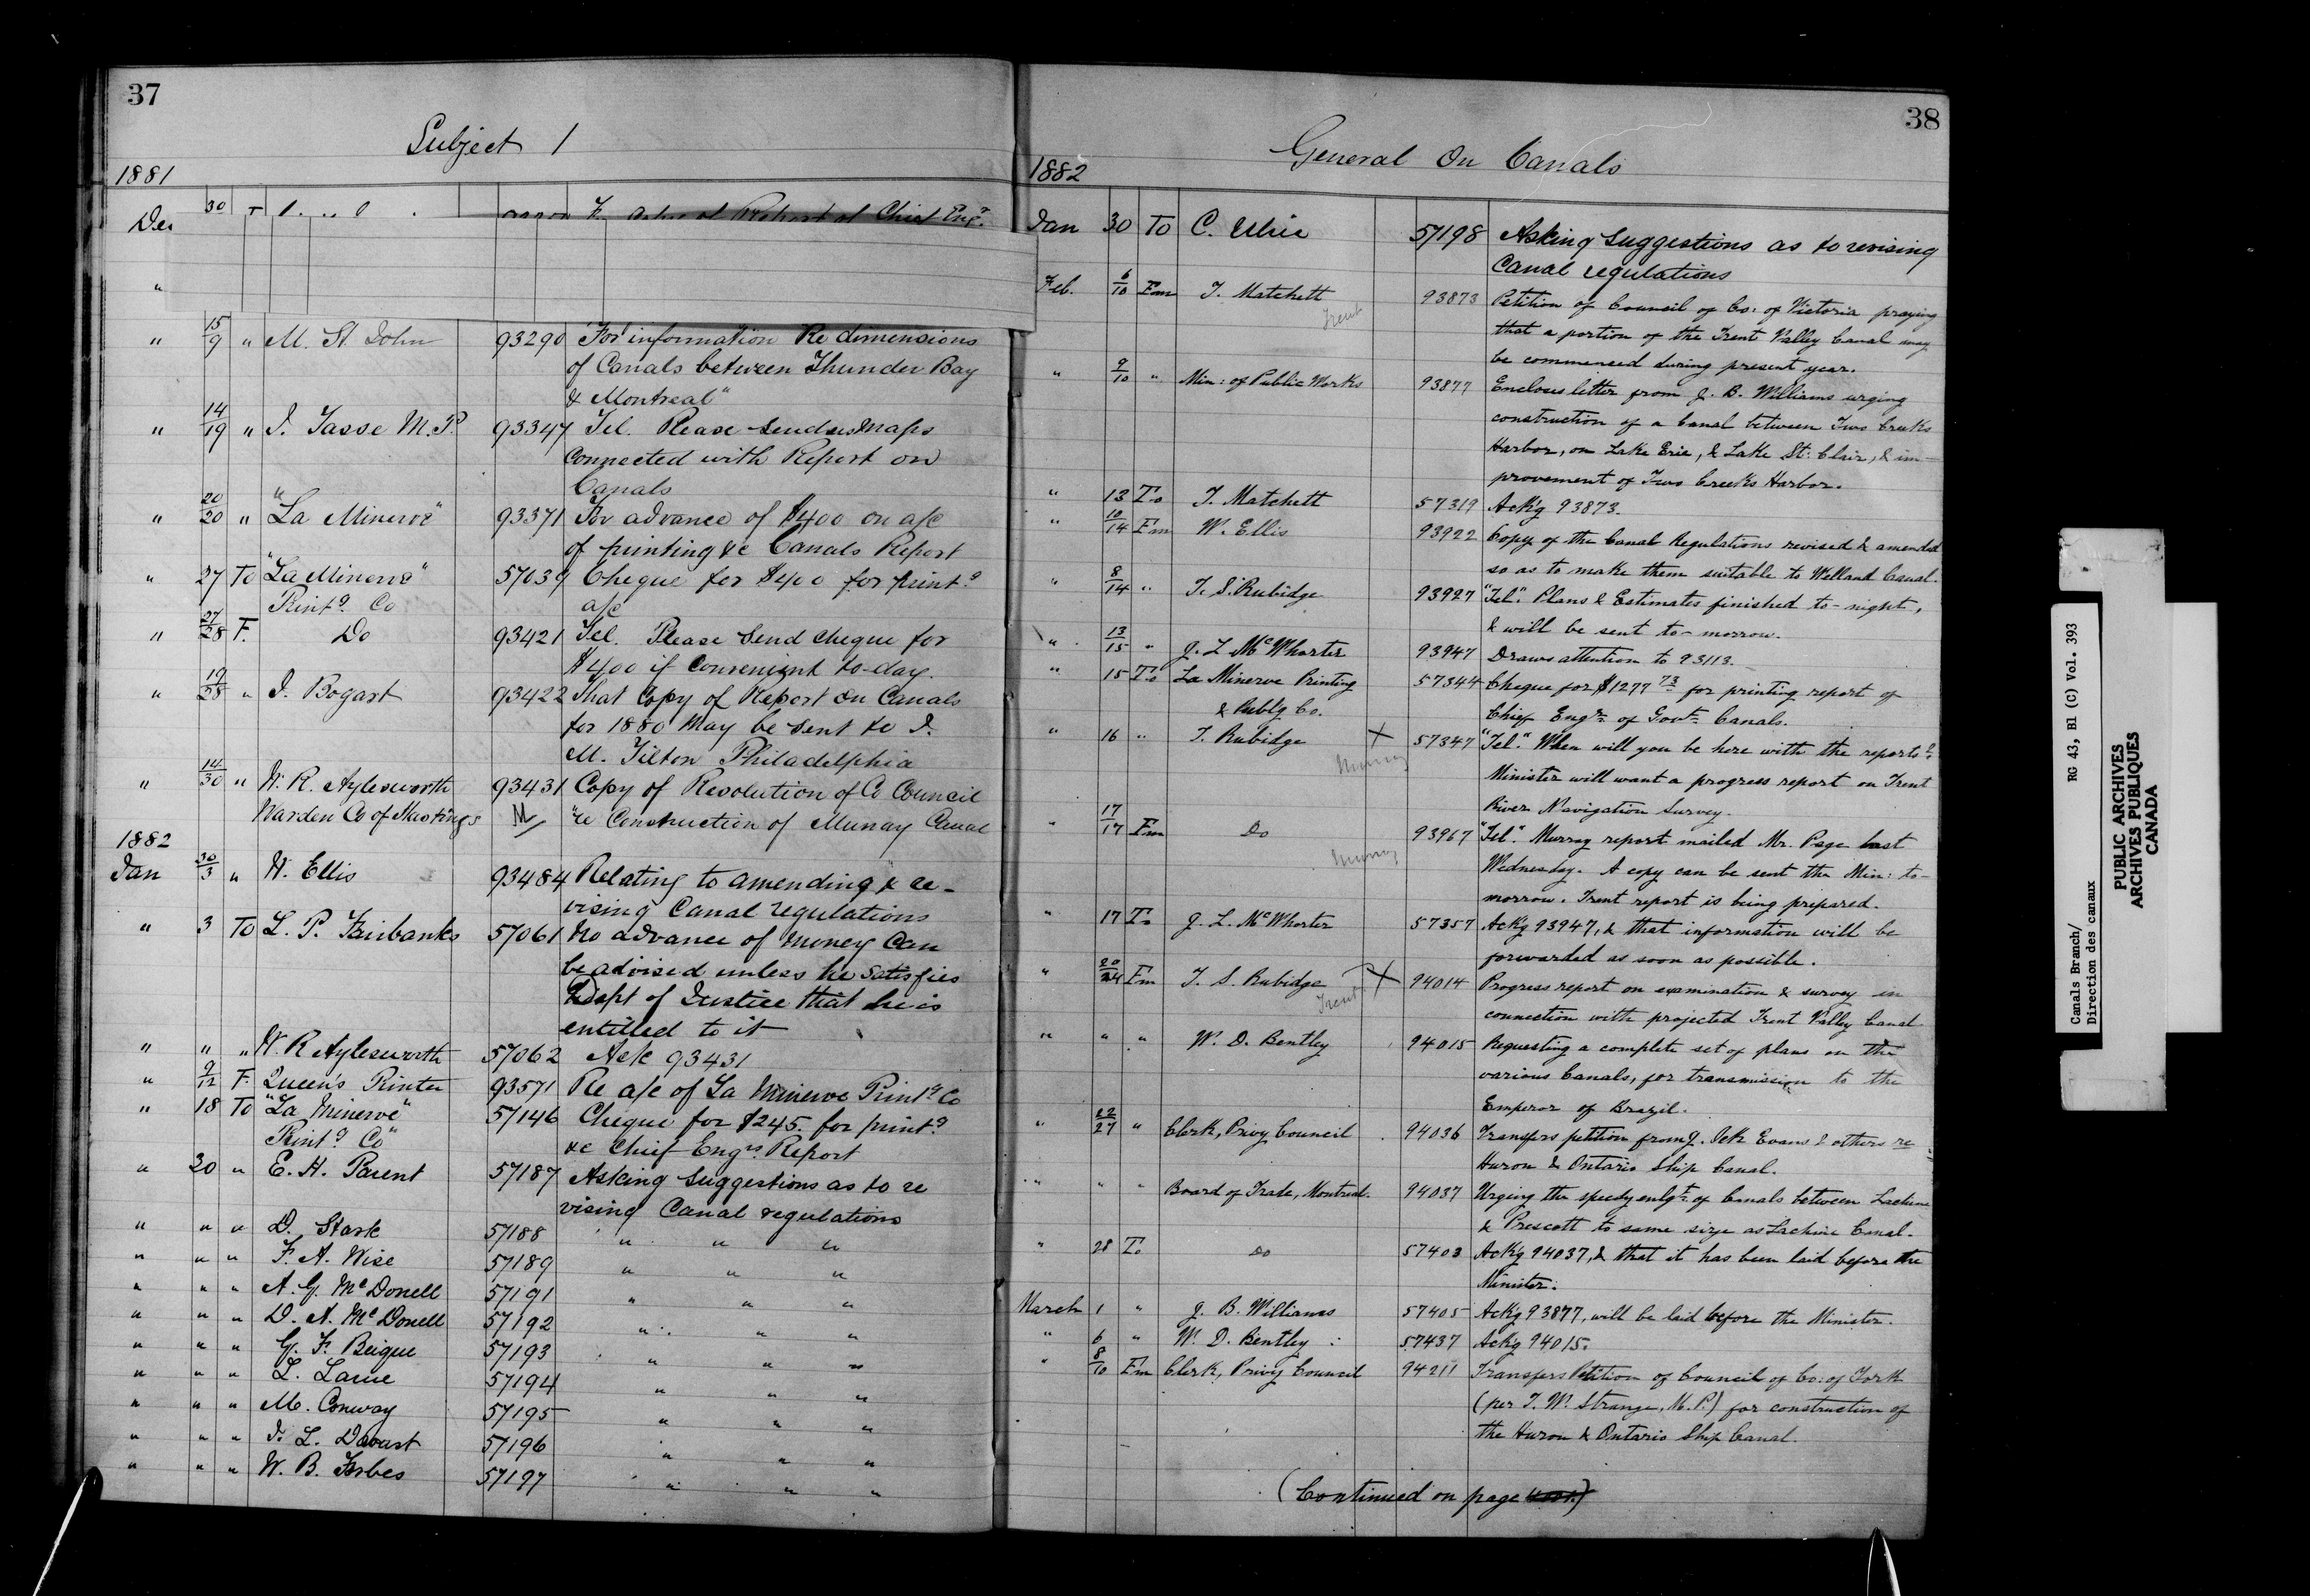 37
Subject 1
1881
Dec 30 Report of Chief Engr.
"
" 15/9 " M. St. John 93290 For information Re dimensions
of Canals between Thunder Bay
& Montreal"
" 14/19 " J. Tasse M.P. 93347 Tel. Please send us maps
Connected with Report on
Canals
" 20/20 " "La Minerve" 93371 For advance of $400 on a/c
of printing &c Canals Report
" 27 To "La Minerve" 57039 Cheque for $400 for print.g
Print.g Co a/c
" 27/28 F. Do 93421 Tel. Please send cheque for
$400 if convenient to-day.
" 19/28 " J. Bogart 93422 That Copy of Report on Canals
for 1880 may be sent to J.
M. Tilton Philadelphia
" 14/30 " W. R. Aylesworth 93431 Copy of Resolution of Co Council
Warden Co of Hastings M re Construction of Murray Canal
1882
Jan 30/3 " W. Ellis 93484 Relating to amending & re-
vising Canal regulations
" 3 To L. P. Fairbanks 57061 No advance of money can
be advised unless he satisfies
Dept of Justice that he is
entitled to it
" " " W. R Aylesworth 57062 Ack 93431
" 9/12 F. Queen's Printer 93571 Re a/c of La Minerve Print.g Co
" 18 To "La Minerve 57146 Cheque for $245. for print.g
Print.g Co" &c Chief Engrs. Report
" 30 " E. H. Parent 57187 Asking suggestions as to re
vising Canal regulations
" " " D. Stark 57188 " " "
" " " F. A. Wise 57189 " " "
" " " A. G. McDonell 57191 " " "
" " " D. A. McDonell 57192 " " "
" " " G. F. Beique 57193 " " "
" " " L. Larue 57194 " " "
" " " M. Conway 57195 " " "
" " " J. L. 57196 " " "
" " " W. B. Forbes 57197 " " "
38
General On Canals
1882
Jan 30 To C. 57198 Asking suggestions as to revising
Canal regulations
Feb. 6/10 Fm T. Matchett 93873 Petition of Council of Co: of Victoria praying
Trent that a portion of the Trent Valley Canal may
be commenced during present year.
" 9/10 " Min: of Public Works 93877 Encloses letter from J. B. Williams urging
construction of a Canal between Two Creeks
Harbor, on Lake Erie, & Lake St. Clair, & im-
provement of Two Creeks Harbor.
" 13 To T. Matchett 57319 Ackg 93873.
" 10/14 Fm W. Ellis 93922 Copy of the Canal Regulations revised & amended
so as to make them suitable to Welland Canal.
" 8/14 " T. S. Rubidge 93927 "Tel." Plans & Estimates finished to-night,
& will be sent to-morrow.
" 13/15 " J. L McWhorter 93947 Draws attention to 93113.
" 15 To La Minerve Printing 57344 Cheque for $1277 73 for printing report of
& Publg Co. Chief Engr. of Govt. Canals.
" 16 " T. Rubidge X 57347 "Tel." When will you be here with the reports?
Murray Minister will want a progress report on Trent
River Navigation Survey.
" 17/17 Fm Do 93967 "Tel." Murray report mailed Mr. Page last
Murray Wednesday. A copy can be sent the Min: to-
morrow. Trent report is being prepared.
" 17 To J. L. McWhorter 57357 Ackg 93947, & that information will be
forwarded as soon as possible.
" 20/24 Fm T. S. Rubidge X 94014 Progress report on examination & survey in
Trent connection with projected Trent Valley Canal
" " " W. D. Bentley 94015 Requesting a complete set of plans on the
various Canals, for transmission to the
Emperor of Brazil.
" 22/27 " Clerk, Privy Council 94036 Transfers petition from J. Evans & others re
Huron & Ontario Ship Canal.
" " " Board of Trade, Montreal. 94037 Urging the speedy enlgt. of Canals between Lachine
& Prescott to same size as Lachine Canal.
" 28 To Do 57403 Ackg 94037, & that it has been laid before the
Minister.
March 1 " J. B. Williams 57405 Ackg 93877, will be laid before the Minister.
" 6 " W. D. Bentley 57437 Ackg 94015.
" 8/10 Fm Clerk, Privy Council 94211 Transfers Petition of Council of Co: of York
(per T. W. Strange, M.P.) for construction of
the Huron & Ontario Ship Canal.
(Continued on page
Canals Branch/ RG 43, B1 (C) Vol. 393
Direction des canaux
PUBLIC ARCHIVES
ARCHIVES PUBLIQUES
CANADA